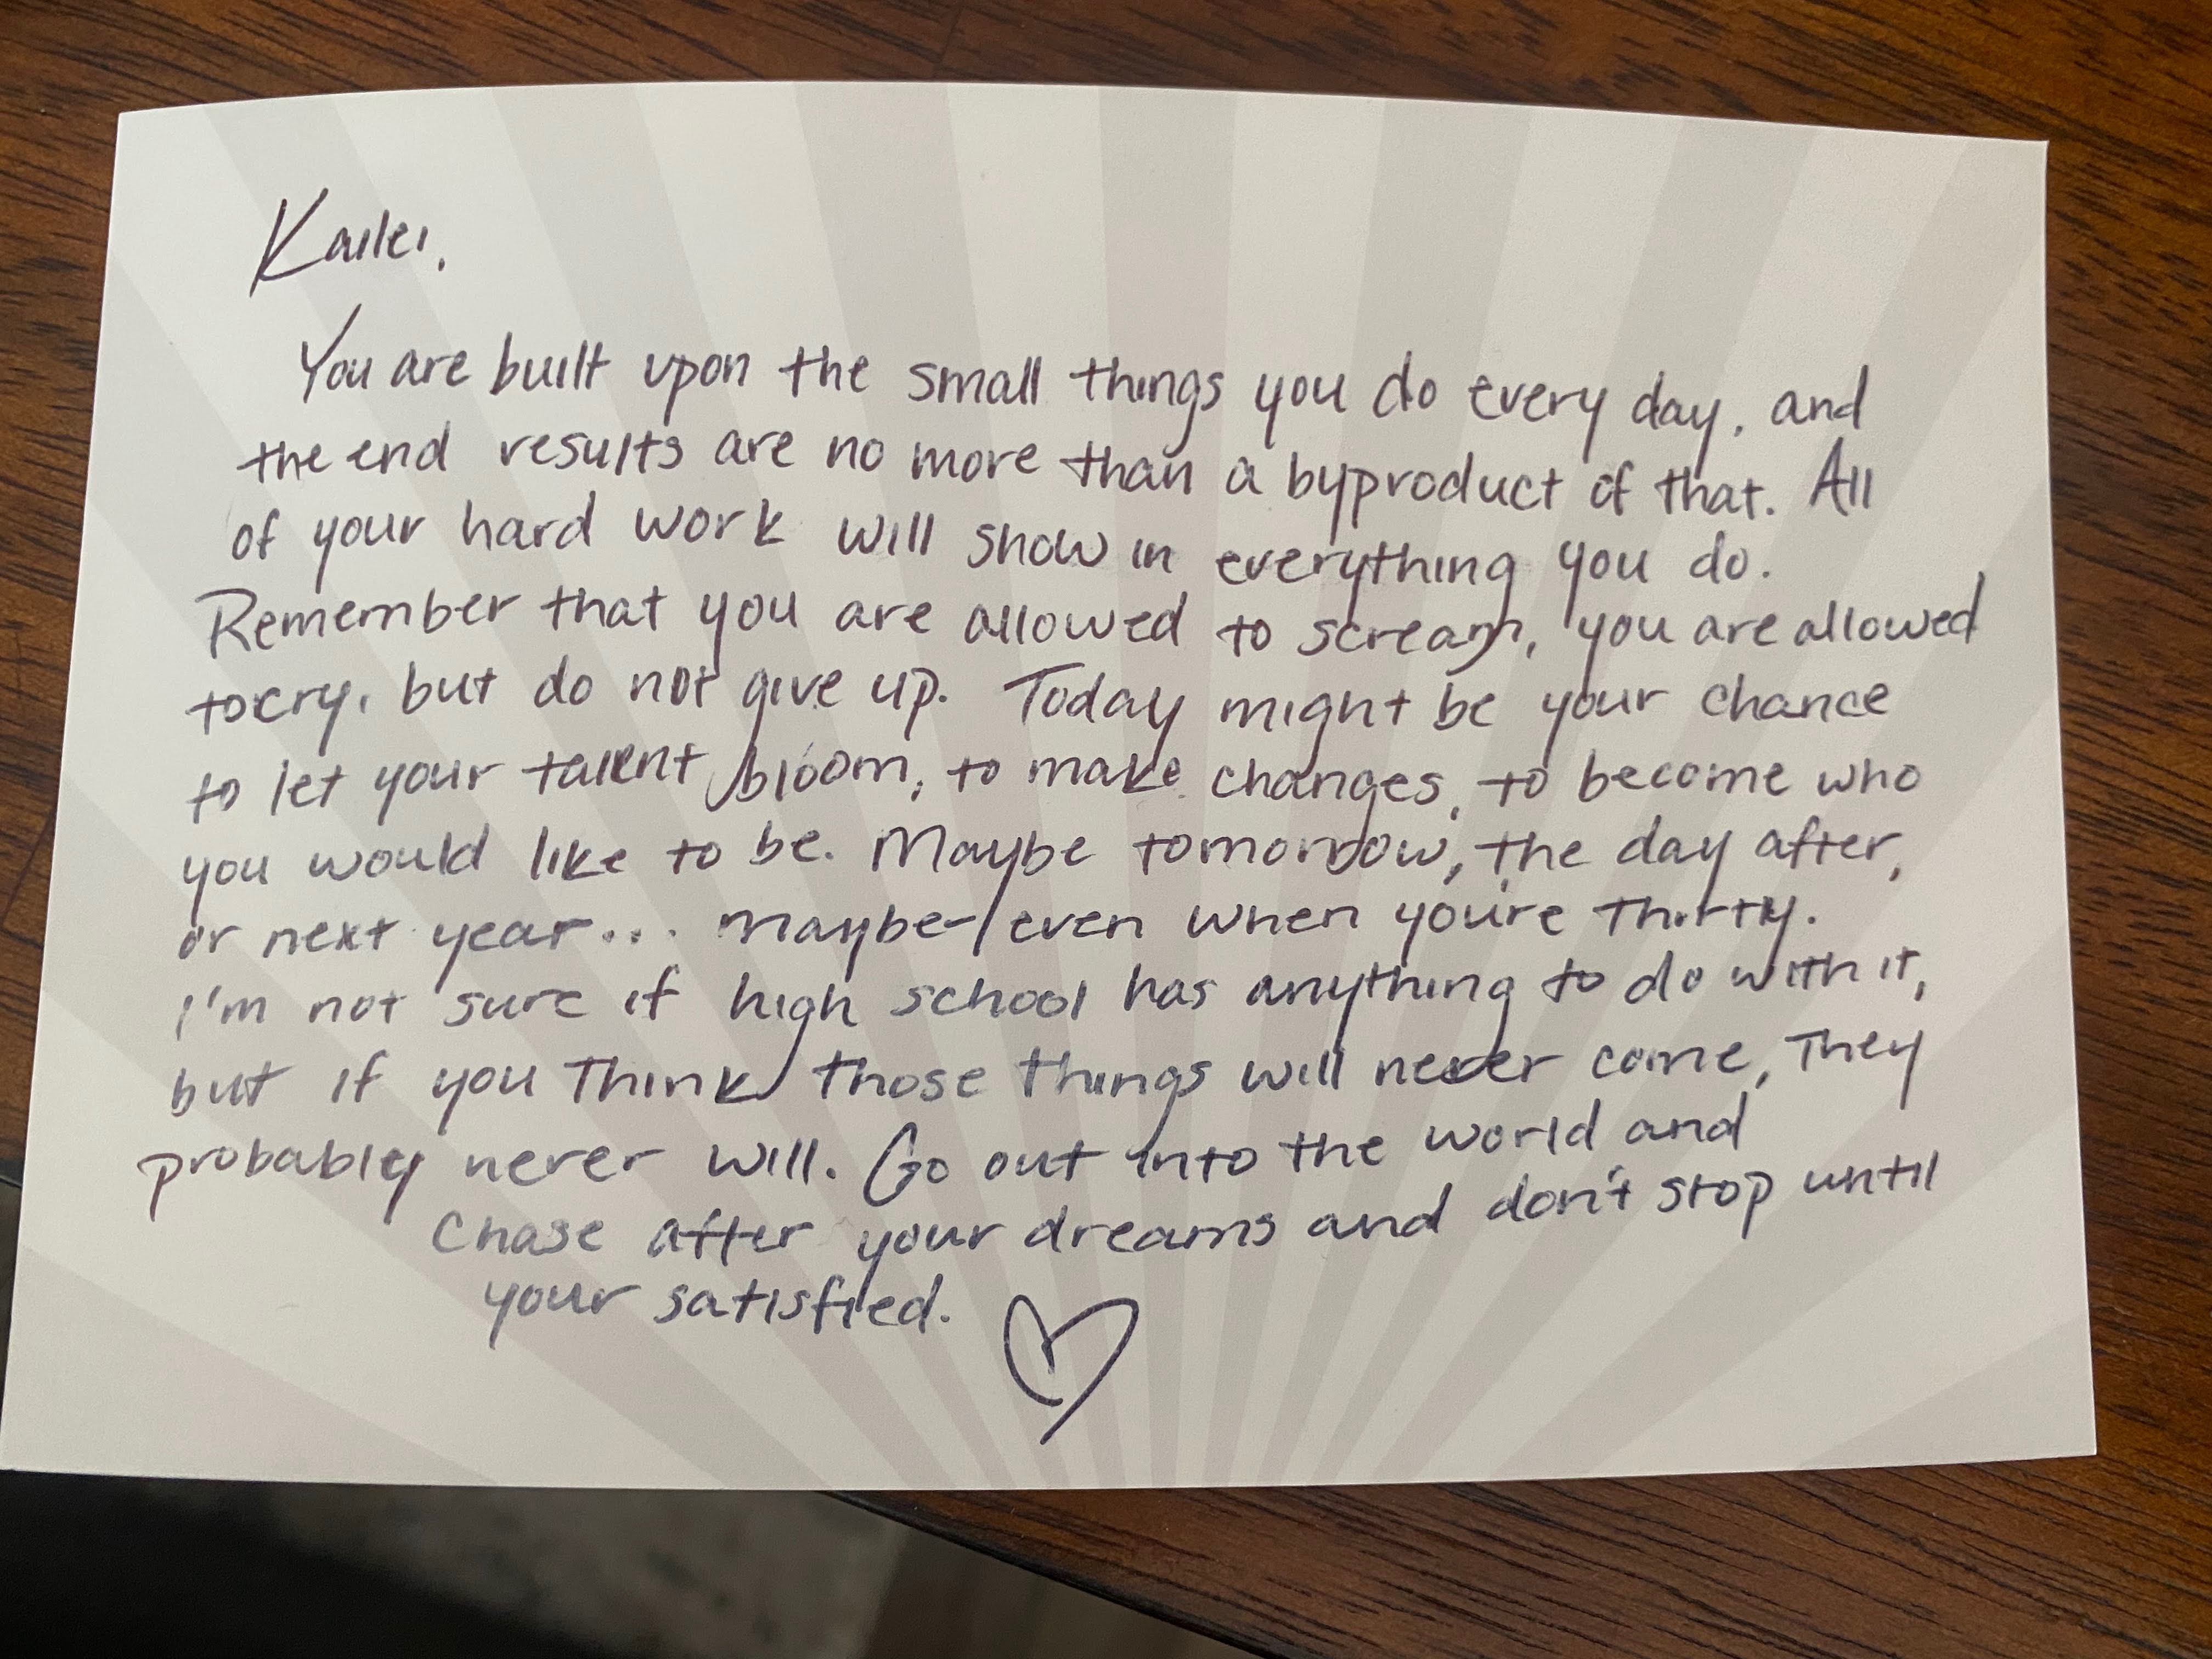 Kailei,
You are built upon the small things you do every day, and
the end results are no more than a byproduct of that. All
of your hard work will show in everything you do.
Remember that you are allowed to scream, you are allowed
to cry, but do not give up. Today might be your chance
to let your talent bloom, to make changes, to become who
you would like to be. Maybe tomorrow, the day after,
or next year... maybe even when you're thirty.
I'm not sure if high school has anything to do with it,
but if you think those things will never come, they
probably never will. Go out into the world and
chase after your dreams and don't stop until
your satisfied.